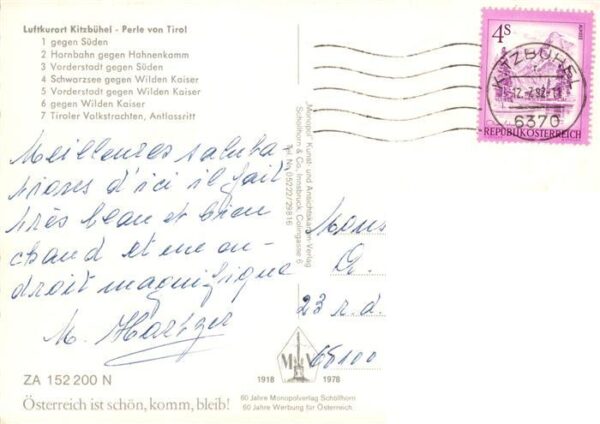 Luftkurort Kitzbühel - Perle von Tirol
1 gegen Süden
2 Hornbahn gegen Hahnenkamm
3 Vorderstadt gegen Süden
4 Schwarzsee gegen Wilden Kaiser
5 Vorderstadt gegen Wilden Kaiser
6 gegen Wilden Kaiser
7 Tiroler Volkstrachten, Antlassritt
Meilleures saluta-
tions d'ici il fait
très beau et bien
chaud et une en-
droit magnifique
M. Hartzer
ZA 152 200 N
Österreich ist schön, komm, bleib!
"Monopol" Kunst- und Ansichtskarten-Verlag
Schöllhorn & Co., Innsbruck, Colingasse 6
Tel. Nr. 05222/29816
M V
1918 1978
60 Jahre Monopolverlag Schöllhorn
60 Jahre Werbung für Österreich.
4S
ALMSEE
REPUBLIK ÖSTERREICH
KITZBÜHEL
12.-7.82-11
6370
Mons
23 r.d.
68100